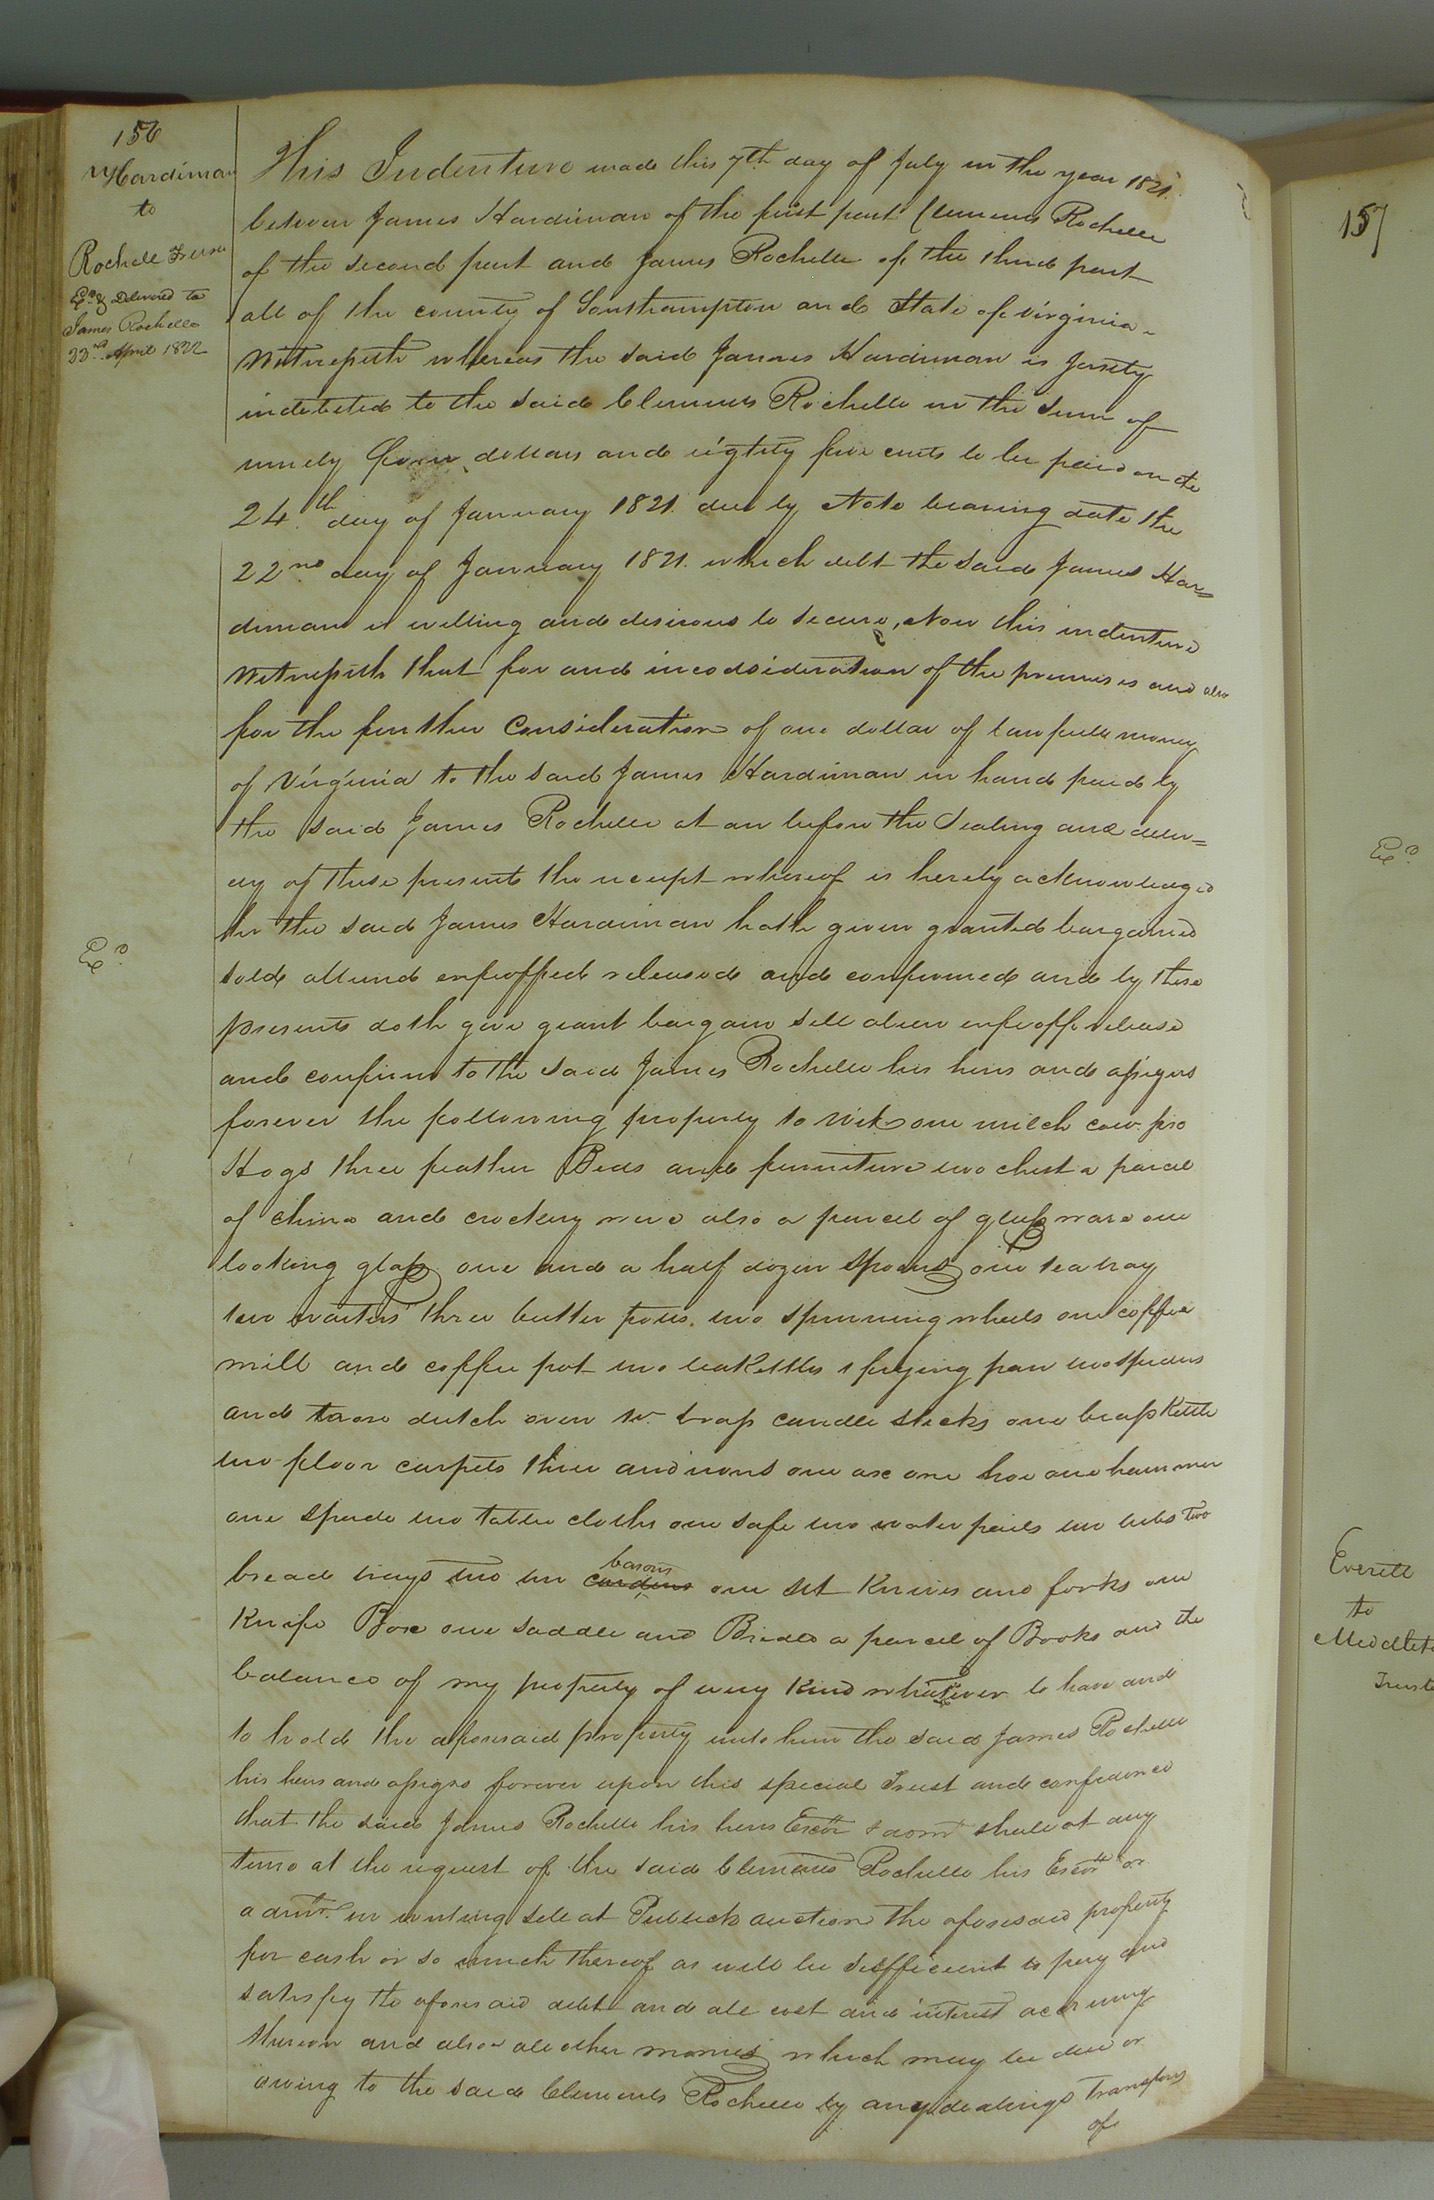 156
Hardiman
to
Rochelle Trust
Exd & Delivered to
James Rochelle
22nd April 1822
This Indenture made this 7th day of July in the year 1821.
between James Hardiman of the first part Clements Rochelle
of the second part and James Rochelle of the third part
all of the county of Southampton and State of virginia -
Witnesseth whereas the said James Hardiman is Justly
indebted to the said Clements Rochelle in the Sum of
ninety four dollars and eightty five cents to be paid on the
24th day of January 1821. due by Note bearing date the
22nd day of January 1821. which debt the said James Har=
diman is willing and desirous to secure, Now this indenture
Witnesseth that for and incodsideration of the premises and also
for the further Consideration of one dollar of lawfull money
of Virginia to the said James Hardiman in hand paid by
the said James Rochelle at an before the Sealing and deliv=
ery of these presents the receipt whereof is hereby acknowledged
he the said James Hardiman hath given granted bargained
sold aliund enfeoffed released and confirmed and by these
presents doth give grant bargain sell alien enfeoff release
and confirm to the said James Rochelle his heirs and assigns
forever the following property to Wit one milch cow. five
Hogs three feather Beds and furniture two chest a parcel
of china and crockery ware also a parcel of glass ware one
looking glass one and a half dozen spoons one tea tray
two waiters three butter potts. two spinning wheels one coffee
mill and coffee pot two teaKettles 1 frying pan two spiders
and dutch oven two brass candle sticks one brass Kettle
two floor carpets three andirons one axe one hoe one hammer
one spade two table cloths one safe two water pails two tubs two
basons
bread trays two tin one set Knives and forks one
Knife Box one saddle and Bridle a parcel of Books and the
balance of my property of every Kind whatsever to have and
to hold the aforesaid property unto him the said James Rochelle
his heirs and assigns forever upon this special Trust and confidence
that the said James Rochelle his heirs Exors & admrs shall at any
time at the request of the said Clements Rochelle his Exors or
admrs. in writing sell at Publick auction the aforesaid property
for cash or so much thereof as will be sufficient to pay and
satisfy the aforesaid debt and all cost and interest accruing
thereon and also all other monies which may be due or
owing to the said Clements Rochelle by any dealings Transfers
of
Exd
157
Exd
Everitt
to
Middlet
Trust